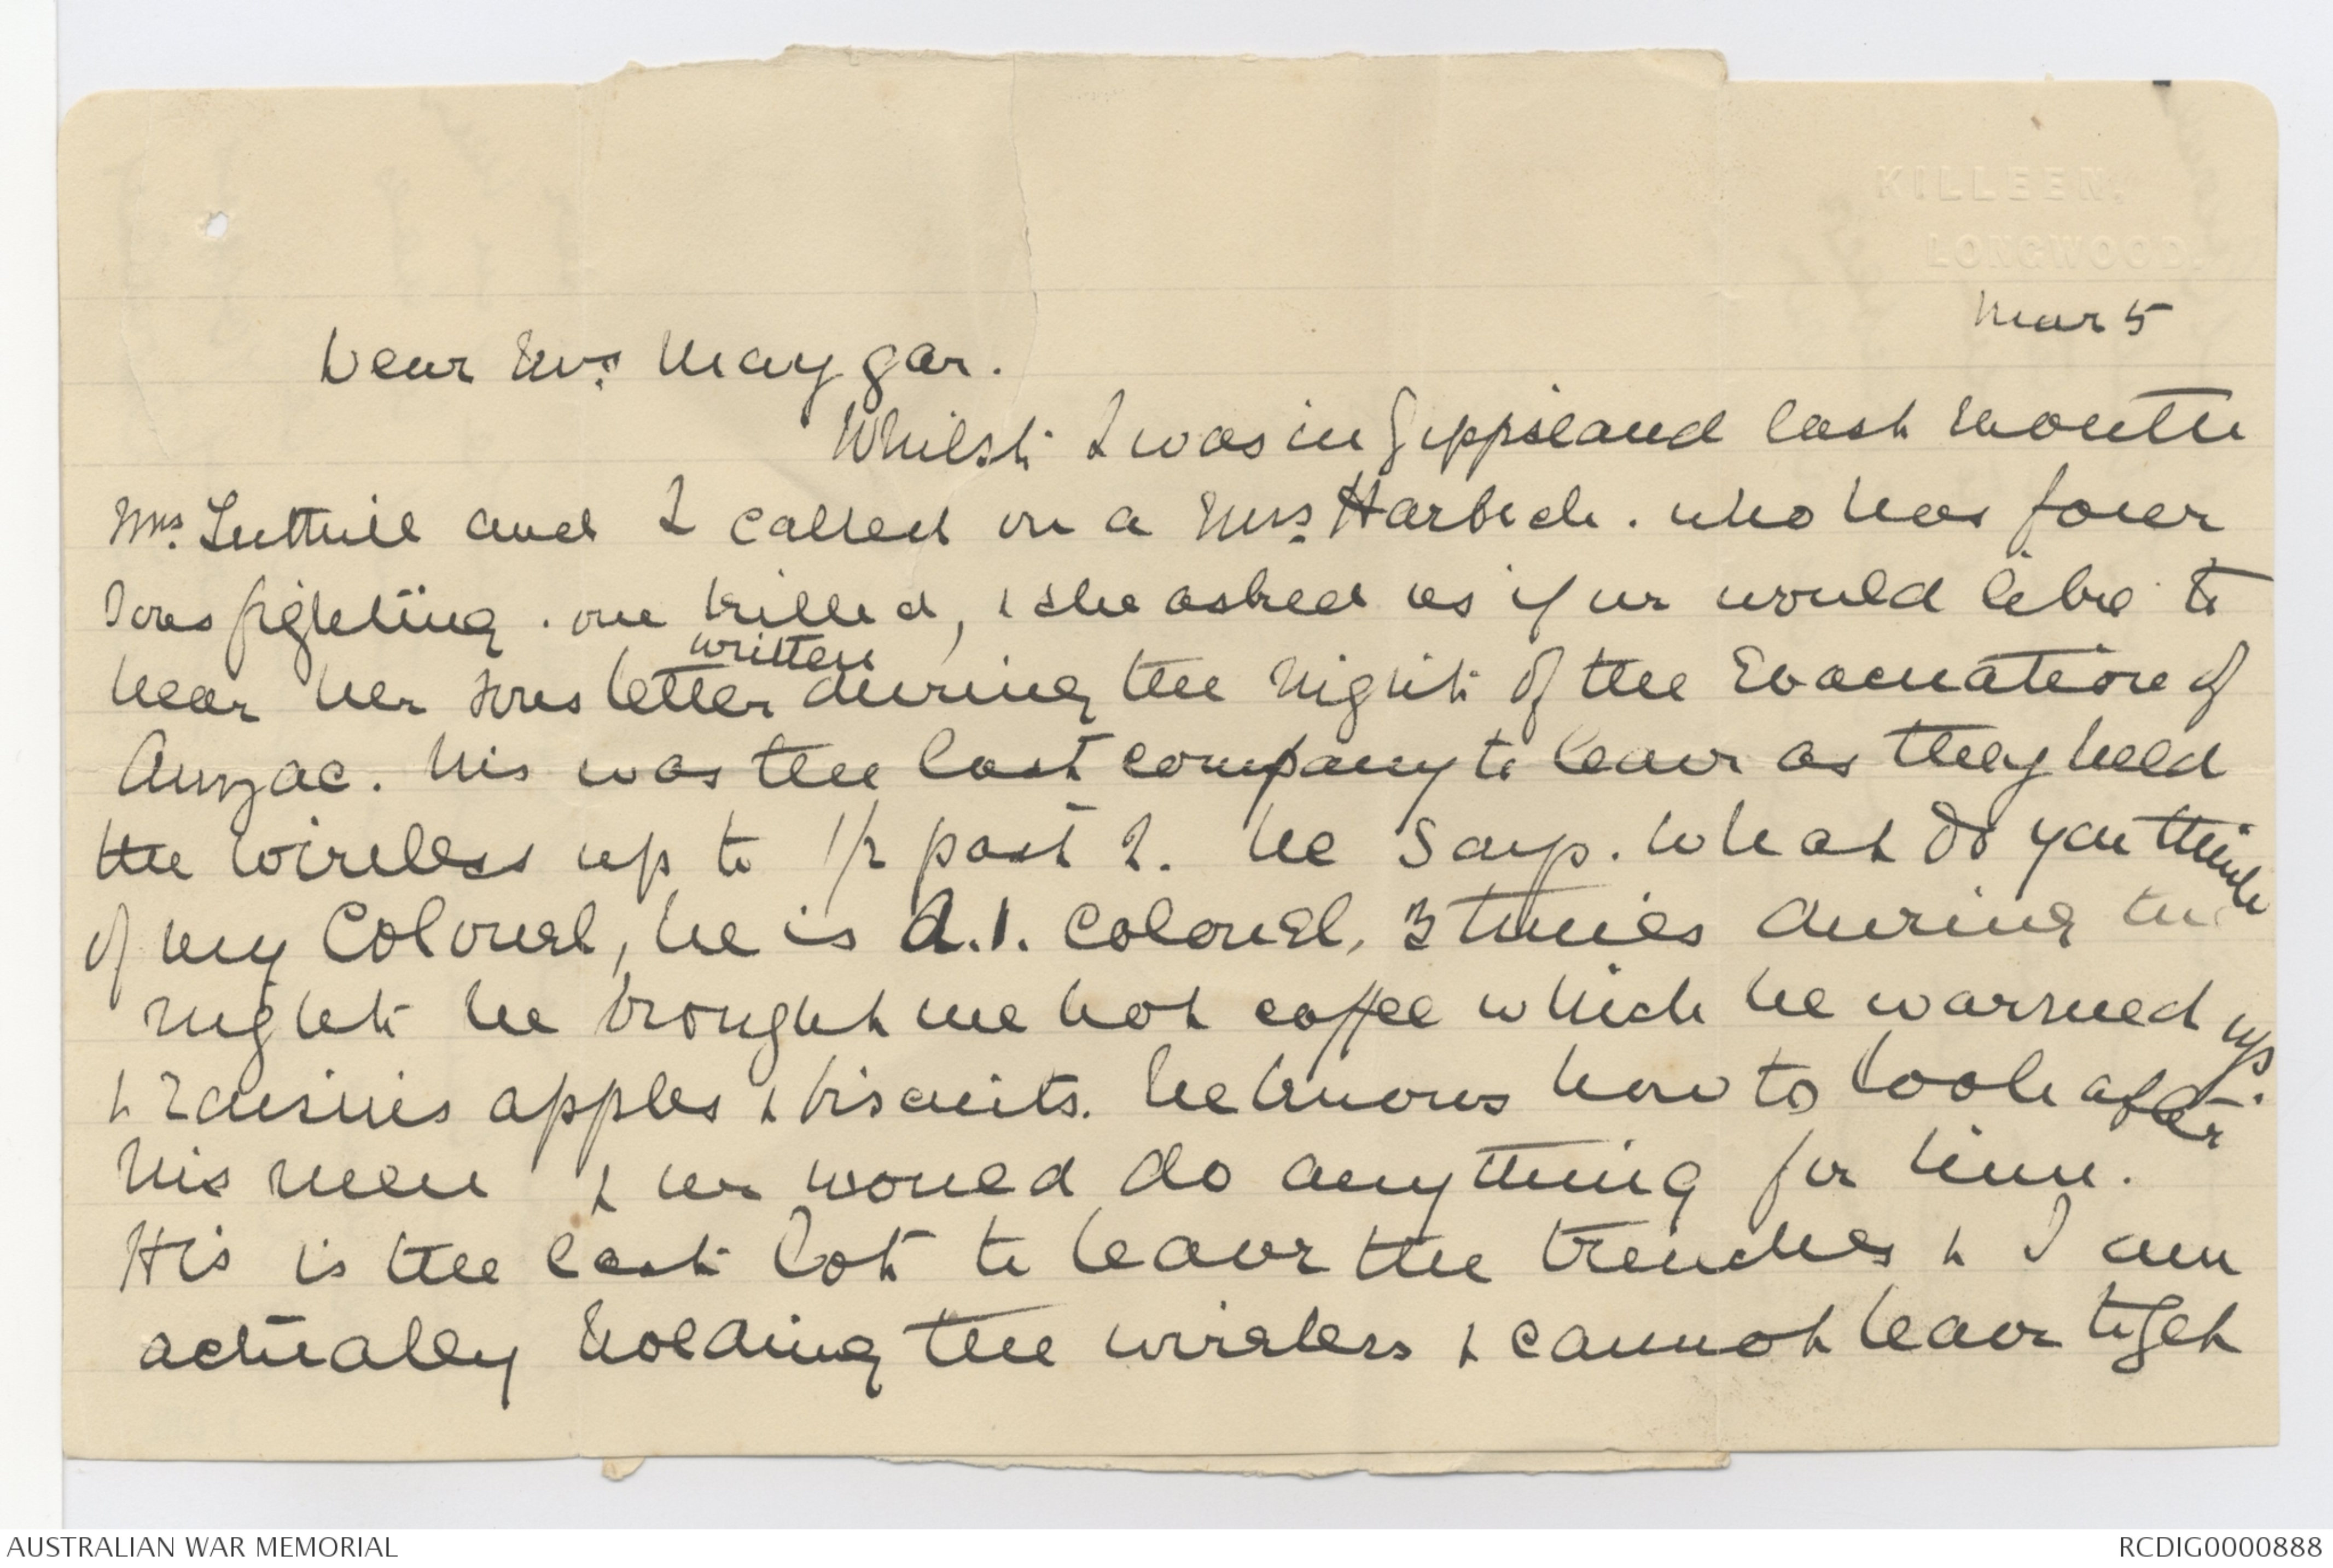 KILLEEN.
LONGWOOD.
Mar 5
Dear Mrs Maygar.
Whilst I was in Gippsland last month
Mrs. Luttrell and I called on a Mrs Harbich. who has four
sons fighting. one killed, & she asked us if we would like to
written
hear her sons letter during the night of the Evacuation of
Anzac. his was the last company to leave as they held
the wireless up to 1/2 past 2. he says. What do you think
of my Colonel, he is A.1. Colonel, 3 times during the
night he brought me hot coffee which he warmed up.
& raisins apples & biscuits. he knows how to look after
his men & we would do anything for him.
His is the last lot to leave the trenches & I am
actually holding the wireless & cannot leave to get
AUSTRALIAN WAR MEMORIAL
RCDIG0000888